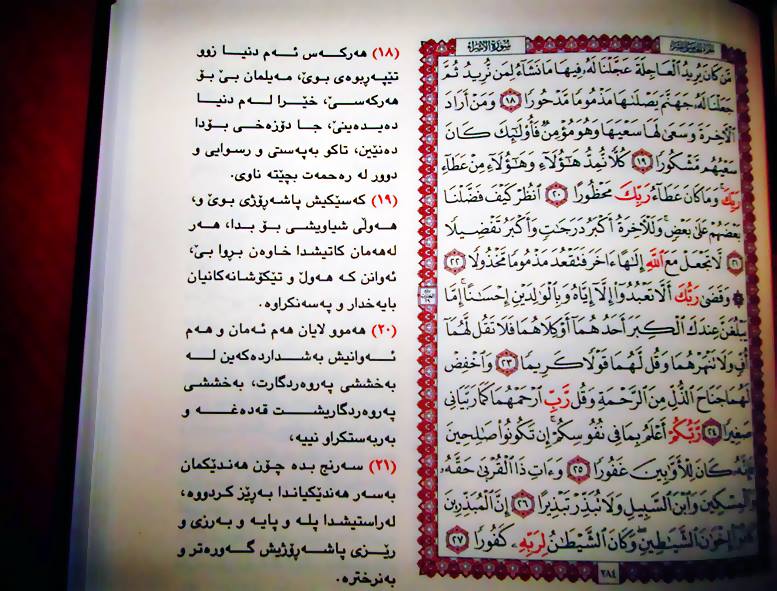 سُورَةُ الإِسْرَاءِ
مَّن كَانَ يُرِيدُ ٱلْعَاجِلَةَ عَجَّلْنَا لَهُۥ فِيهَا مَا نَشَآءُ لِمَن نُّرِيدُ ثُمَّ
جَعَلْنَا لَهُۥ جَهَنَّمَ يَصْلَىٰهَا مَذْمُومًا مَّدْحُورًا ١٨ وَمَنْ أَرَادَ
ٱلْءَاخِرَةَ وَسَعَىٰ لَهَا سَعْيَهَا وَهُوَ مُؤْمِنٌ فَأُو۟لَٰٓئِكَ كَانَ
سَعْيُهُم مَّشْكُورًا ١٩ كُلًّا نُّمِدُّ هَٰٓؤُلَآءِ وَهَٰٓؤُلَآءِ مِنْ عَطَآءِ
رَبِّكَ ۚ وَمَا كَانَ عَطَآءُ رَبِّكَ مَحْظُورًا ٢٠ ٱنظُرْ كَيْفَ فَضَّلْنَا
بَعْضَهُمْ عَلَىٰ بَعْضٍ ۚ وَلَلْءَاخِرَةُ أَكْبَرُ دَرَجَٰتٍ وَأَكْبَرُ تَفْضِيلًا
٢١ لَّا تَجْعَلْ مَعَ ٱللَّهِ إِلَٰهًا ءَاخَرَ فَتَقْعُدَ مَذْمُومًا مَّخْذُولًا ٢٢
۞ وَقَضَىٰ رَبُّكَ أَلَّا تَعْبُدُوٓا۟ إِلَّآ إِيَّاهُ وَبِٱلْوَٰلِدَيْنِ إِحْسَٰنًا ۚ إِمَّا
يَبْلُغَنَّ عِندَكَ ٱلْكِبَرَ أَحَدُهُمَآ أَوْ كِلَاهُمَا فَلَا تَقُل لَّهُمَآ
أُفٍّ وَلَا تَنْهَرْهُمَا وَقُل لَّهُمَا قَوْلًا كَرِيمًا ٢٣ وَٱخْفِضْ
لَهُمَا جَنَاحَ ٱلذُّلِّ مِنَ ٱلرَّحْمَةِ وَقُل رَّبِّ ٱرْحَمْهُمَا كَمَا رَبَّيَانِى
صَغِيرًا ٢٤ رَّبُّكُمْ أَعْلَمُ بِمَا فِى نُفُوسِكُمْ ۚ إِن تَكُونُوا۟ صَٰلِحِينَ
فَإِنَّهُۥ كَانَ لِلْأَوَّٰبِينَ غَفُورًا ٢٥ وَءَاتِ ذَا ٱلْقُرْبَىٰ حَقَّهُۥ
وَٱلْمِسْكِينَ وَٱبْنَ ٱلسَّبِيلِ وَلَا تُبَذِّرْ تَبْذِيرًا ٢٦ إِنَّ ٱلْمُبَذِّرِينَ
كَانُوٓا۟ إِخْوَٰنَ ٱلشَّيَٰطِينِ ۖ وَكَانَ ٱلشَّيْطَٰنُ لِرَبِّهِۦ كَفُورًا ٢٧
٢٨٤
(١٨) هەرکەس ئەم دنیا زوو
تێپەڕبوەی بوێ، مەیلمان بێ بۆ
هەرکەسێ، خێرا لەم دنیا
دەیدەینێ، جا دۆزەخی بۆدا
دەنێین، تاکو بەپەستی و رسوایی و
دوور لە رەحمەت بچێتە ناوی.
(١٩) کەسێکیش پاشەڕۆژی بوێ و،
هەوڵی شیاویشی بۆ بدا، هەر
لەهەمان کاتیشدا خاوەن بڕوا بێ،
ئەوانن کە هەوڵ و تێکۆشانەکانیان
بایەخدار و پەسەنکراوە.
(٢٠) هەموو لایان هەم ئەمان و هەم
ئەوانیش بەشداردەکەین لە
بەخششی پەروەردگارت، بەخششی
پەروەردگاریشت قەدەغە و
بەربەستکراو نییە،
(٢١) سەرنج بدە چۆن هەندێکمان
بەسەر هەندێکیاندا بەڕێز کردووە،
لەڕاستیشدا پلە و پایە و بەرزی و
رێزی پاشەڕۆژیش گەورەتر و
بەنرخترە.